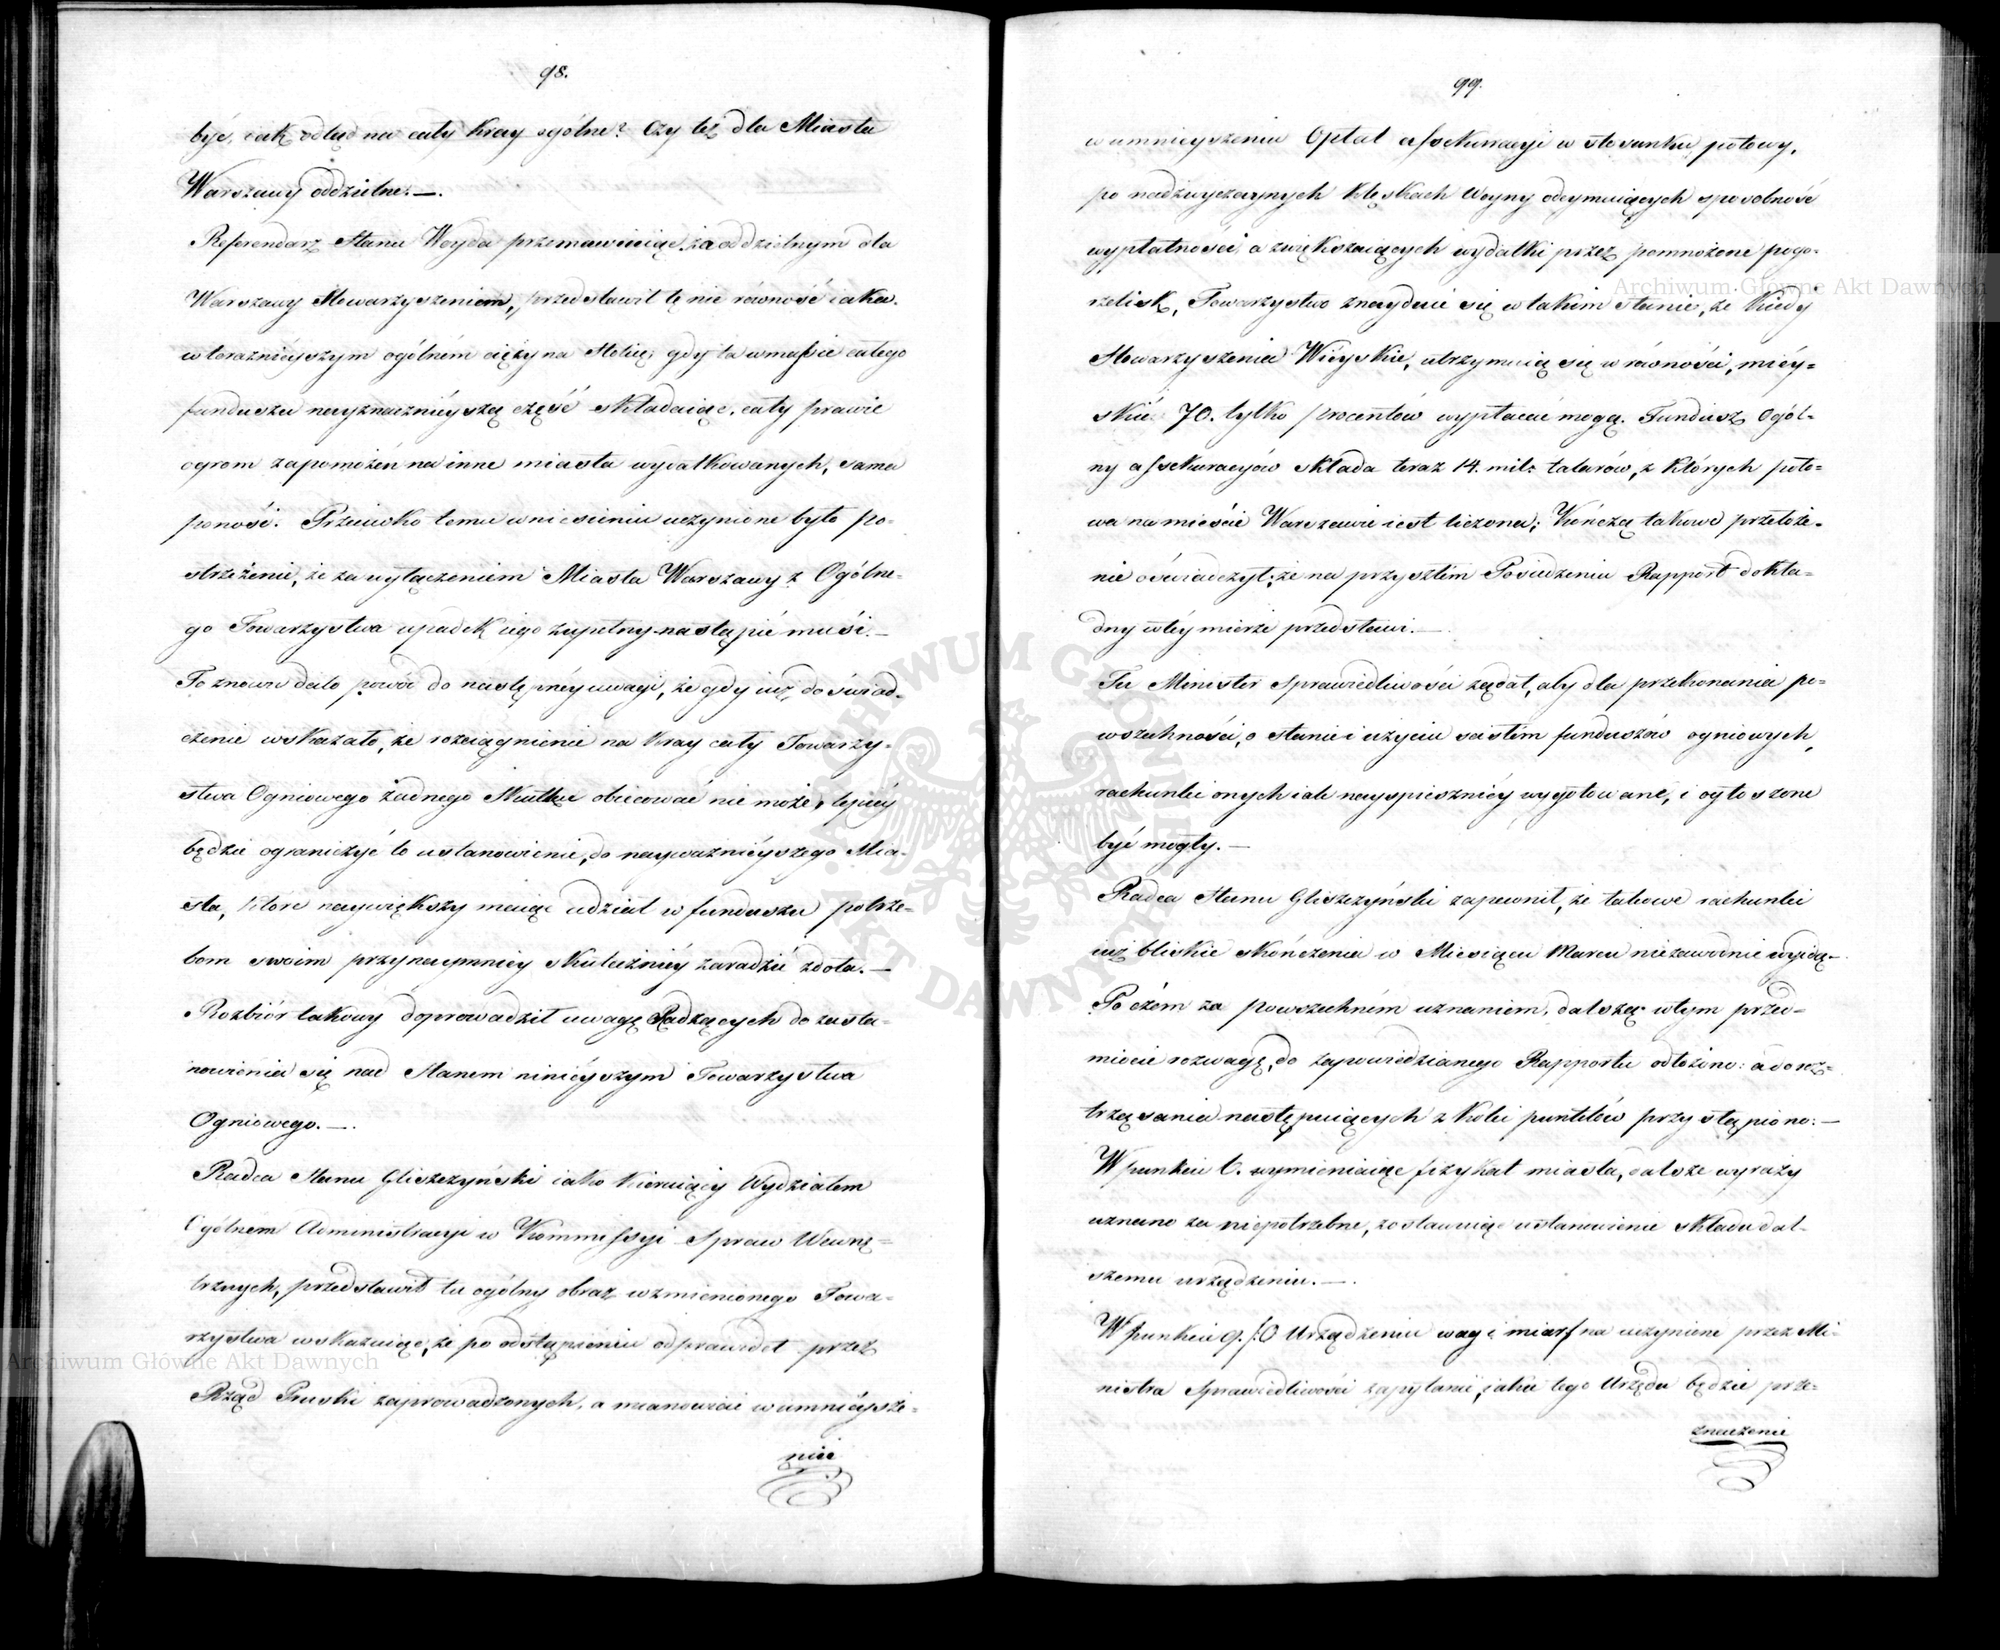 98.
być, iak odtąd na cały Kray ogólne? Czy też dla Miasta
Warszawy oddzielne. —.
Referendarz Stanu Woyda przemawiaiąc za oddzielnym dla
Warszawy Stowarzyszeniem, przedstawił tę nie równość iaka
w teraźnieyszym ogólném ciąży na Stolicę, gdy ta w massie całego
funduszu nayznacznieyszą część składaiąc, cały prawie
ogrom zapomożeń na inne miasta wydatkowanych, sama
ponosi. Przeciwko temu wniesieniu uczynione było po-
strzeżenie, że za wyłączeniem Miasta Warszawy z Ogólne-
go Towarzystwa upadek iego zupełny nastąpić musi. —
To znowu dało powód do następnéy uwagi, że gdy iuż doświad-
czenie wskazało, że rozciągnienie na Kray cały Towarzy-
stwa Ogniowego żadnego Skutku obiecować nie może, lepiéy
będzie ograniczyć to ustanowienie, do nayważnieyszego Mia-
sta, które naywiększy maiąc udział w funduszu potrze-
bom swoim przynaymniey skuteczniéy zaradzić zdoła. —
Rozbiór takowy doprowadził uwagę Radzących do zasta-
nowienia się nad Stanem ninieyszym Towarzystwa
Ogniowego. —.
Radca Stanu Gliszczyński iako kieruiący Wydziałem
Ogólnem Administracyi w Kommissyi Spraw Wewnę-
trznych, przedstawił tu ogólny obraz wzmienionego Towa-
rzystwa wskazuiąc, że po odstąpieniu od prawideł przez
Rząd Pruski zaprowadzonych, a mianowicie w umnieysze-
nie
99.
w umnieyszeniu Opłat assekuracyi w stosunku połowy,
po nadzwyczaynych klęskach Woyny odeymuiących sposobność
wypłatności, a zwiększaiących wydatki przez pomnożone pogo-
rzelisk, Towarzystwo znayduie się w takim stanie, że kiedy
Stowarzyszenia Wieyskie, utrzymuią się w równości, miéy-
skie 70. tylko procentów wypłacać mogą. Fundusz Ogól-
ny assekuracyów składa teraz 14. mil: talarów, z których poło-
wa na mieście Warszawie iest liczona; Kończąc takowe przełoże-
nie oświadczył, że na przyszłém Posiedzeniu Rapport dokła-
dny w téy mierze przedstawi. —.
Tu Minister Sprawiedliwości żądał, aby dla przekonania po-
wszechności, o stanie i użyciu sistem funduszów ogniowych,
rachunki onych iak nayspieszniéy wygotowane, i ogłoszone
być mogły. —
Radca Stanu Gliszczyński zapewnił, że takowe rachunki
iuż bliskie skończenia w Miesiącu Marcu niezawodnie wyidą. —
Poczém za powszechném uznaniem, dalszą w tym przed-
miocie rozwagę, do zapowiedzianego Rapportu odłożono: a do roz-
trząsania następuiących z kolei punktów przystąpiono: —
W punkcie 6. wymieniaiąc fizykat miasta, dalsze wyrazy
uznano za niepotrzebne, zostawuiąc ustanowienie składu dal-
szemu urządzeniu. —.
W punkcie 9. /: O Urządzeniu wag i miar/ na uczynione przez Mi-
nistra Sprawiedliwości zapytanie, iakie tego Urzędu będzie prze-
znaczenie